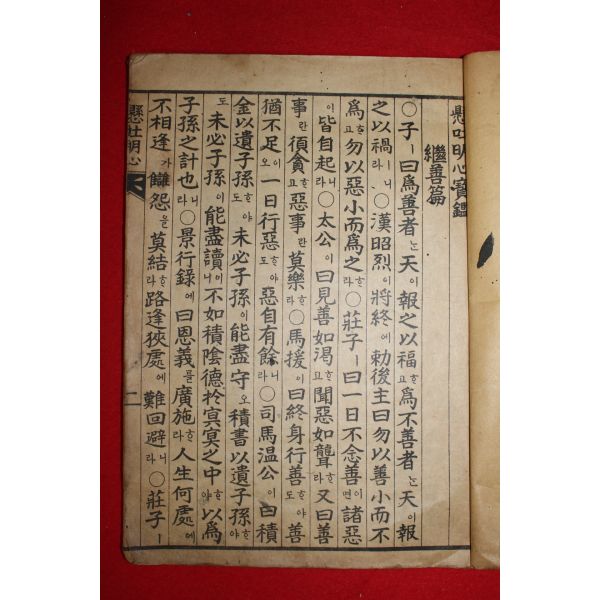 懸吐明心寶鑑
繼善篇
○子ㅣ曰爲善者는天이報之以福하고爲不善者는天이報
之以禍니라○漢昭烈이將終에勅後主曰勿以善小而不
爲하고勿以惡小而爲之하라○莊子ㅣ曰一日不念善이면諸惡
이皆自起니라○太公이曰見善如渴하고聞惡如聾하라又曰善
事란須貪하고惡事란莫樂하라○馬援이曰終身行善하야도善
猶不足이오一日行惡하야도惡自有餘니라○司馬溫公이曰積
金以遺子孫하야도未必子孫이能盡守오積書以遺子孫하야
도未必子孫이能盡讀이니不如積陰德於冥冥之中하야以爲
子孫之計也니라○景行錄에曰恩義를廣施하라人生何處에
不相逢가讐怨을莫結하라路逢狹處에難回避니라○莊子ㅣ
懸吐明心 二